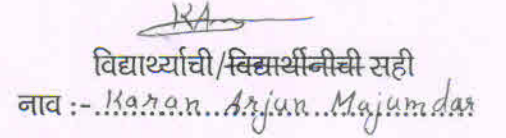 विद्यार्थ्याची/विद्यार्थीनीची सही
नाव :- Karan Arjun Majumdar